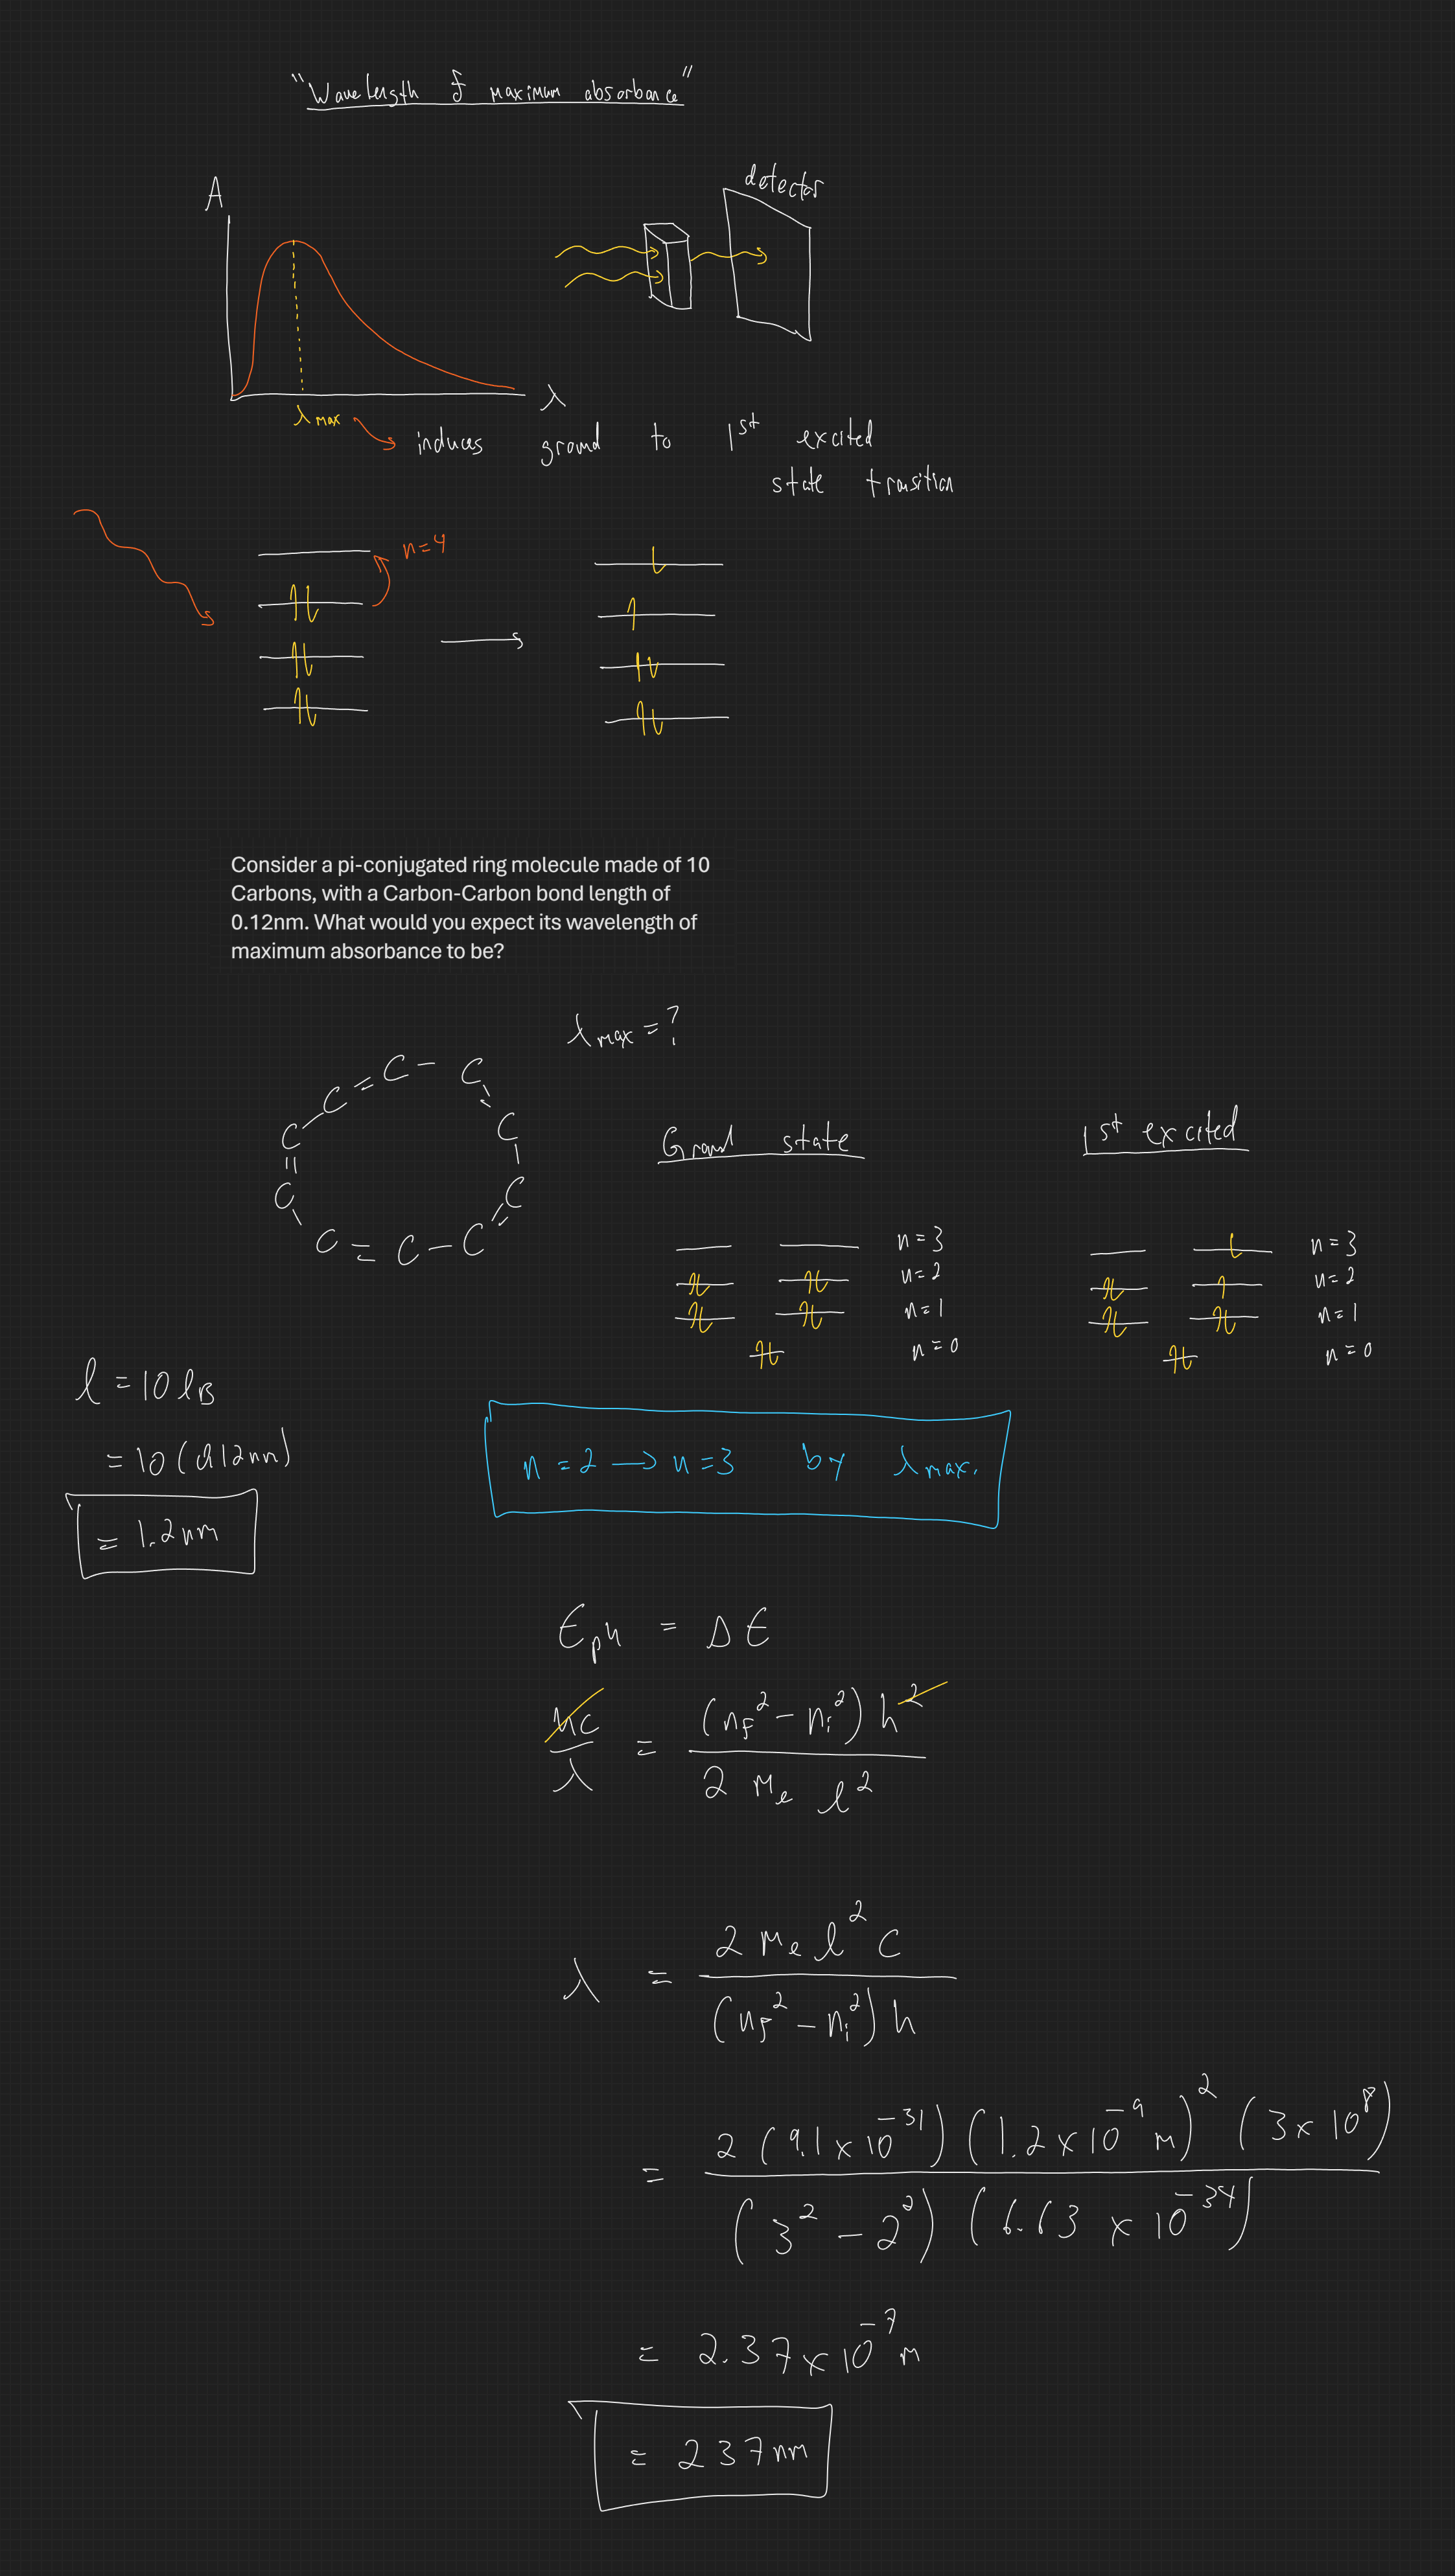 "Wavelength of maximum absorbance"
A
detector
λ
λ max
induces ground to 1st excited
state transition
n=4
Consider a pi-conjugated ring molecule made of 10
Carbons, with a Carbon-Carbon bond length of
0.12nm. What would you expect its wavelength of
maximum absorbance to be?
λ max = ?
C = C - C
C C
C C
C = C - C
Ground state
1st excited
n=3
n=2
n=1
n=0
n=3
n=2
n=1
n=0
l = 10 lB
= 10 (0.12nm)
= 1.2nm
n=2 → n=3 by λ max.
Eph = ΔE
hc/λ = (nf² - ni²) h² / 2 me l²
λ = 2 me l² c / (nf² - ni²) h
= 2 (9.1 x 10^-31) (1.2 x 10^-9 m)² (3 x 10^8) / (3² - 2²) (6.63 x 10^-34)
= 2.37 x 10^-7 m
= 237nm